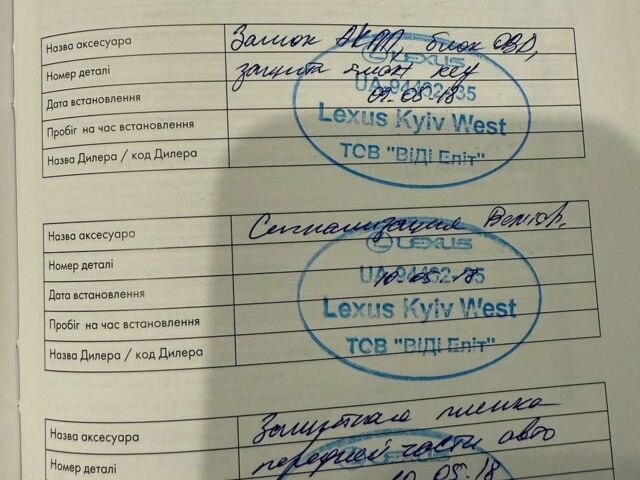 Назва аксесуара Замок АКПП, блок OBD,
Номер деталі защита смарт key
Дата встановлення 09.05.18
Пробіг на час встановлення
Назва Дилера / код Дилера
LEXUS
Lexus Kyiv West
ТОВ "ВіДі Еліт"
Назва аксесуара Сигнализация
Номер деталі
Дата встановлення 10.05.18
Пробіг на час встановлення
Назва Дилера / код Дилера
LEXUS
Lexus Kyiv West
ТОВ "ВіДі Еліт"
Назва аксесуара Защитная пленка
Номер деталі передней части авто
10.05.18